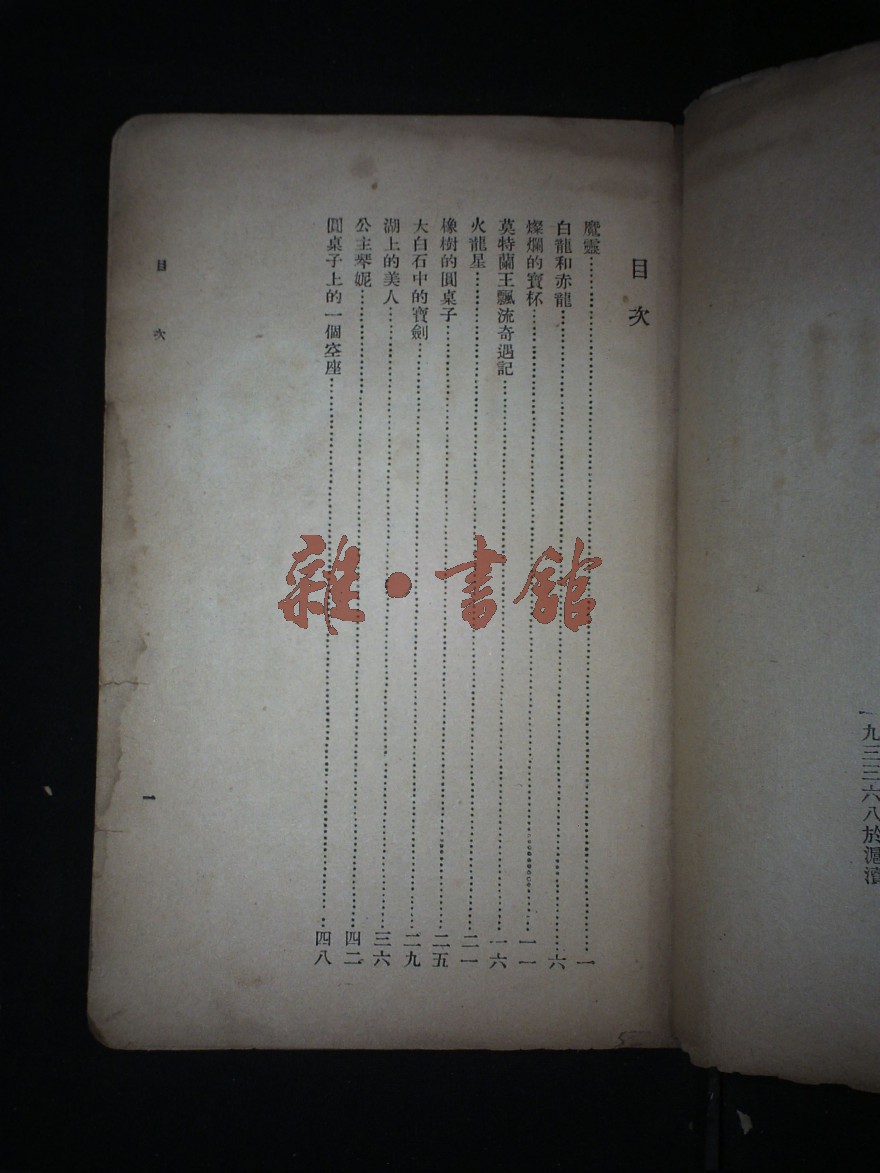 一九三三六八於滬瀆
目次
魔靈……一
白龍和赤龍……六
燦爛的寶杯……一一
莫特蘭王飄流奇遇記……一六
火龍星……二一
橡樹的圓桌子……二五
大白石中的寶劍……二九
湖上的美人……三六
公主琴妮……四二
圓桌子上的一個空座……四八
目次
一
雜·書館